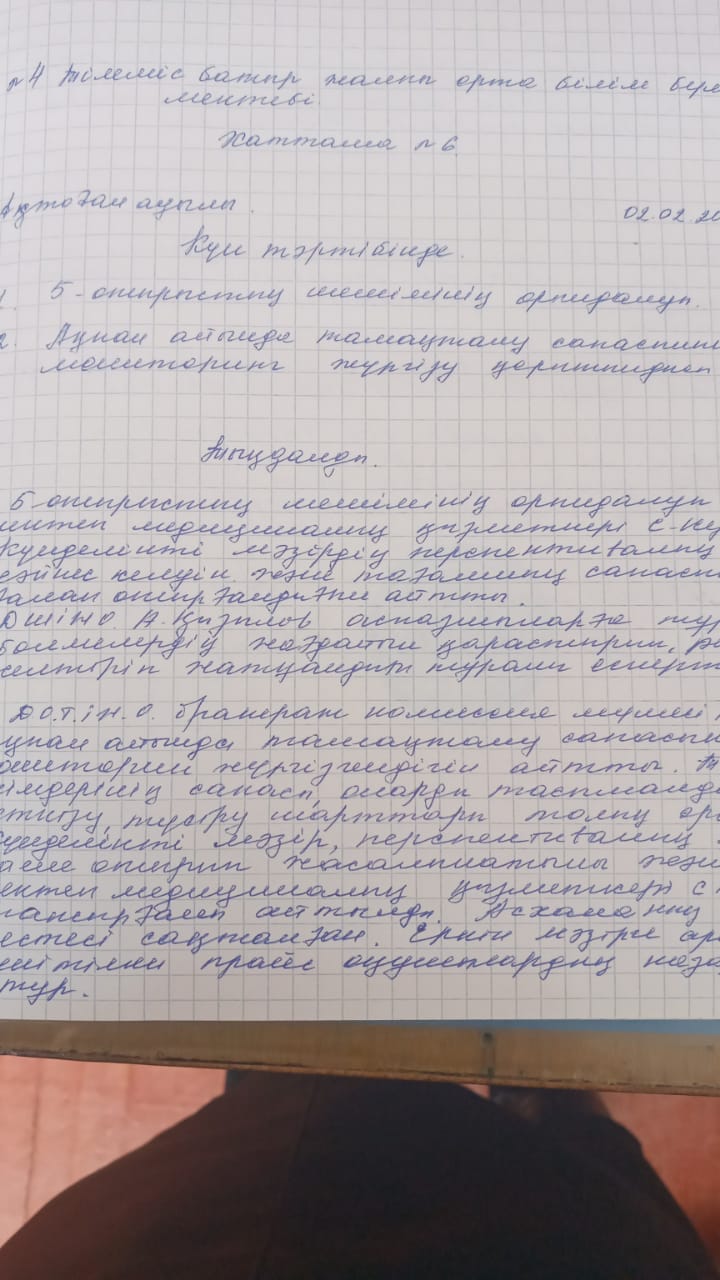 №4 Тілеміс батыр жалпы орта білім бере
мектебі.
Хаттама №6
Ақтоған ауылы.
02.02.20
Күн тәртібінде.
1. 5-отырыстың шешімінің орындалуы.
2. Ақпан айында тамақтану сапасының
мониторинг жүргізу қорытындысы
Тыңдалды.
5-отырыстың шешімінің орындалуы
мектеп медициналық қызметкері С.
Күнделікті мәзірдің перспективалық
сәйкес келуін және тағамның сапасы
талап отырғандығын айтты.
ДШІЖО А. аспазшыларға
бөлмелердің жағдайын қарастырып,
келтіріп жатқандығы туралы есперт
ДОТІЖО. бракераж комиссия мүшесі
ақпан айында тамақтану сапасын
мониторинг жүргізгендігін айтты.
өнімдерінің сапасы, оларды тасымалда
түсіру шарттары толық
күнделікті мәзір, перспективалық
және отырып жасалынатыны және
мектеп медициналық қызметкері С
айтылды. Асхананың
кестесі сақталған. Еркін мәзірі
прайс оқушылардың наза
тұр.